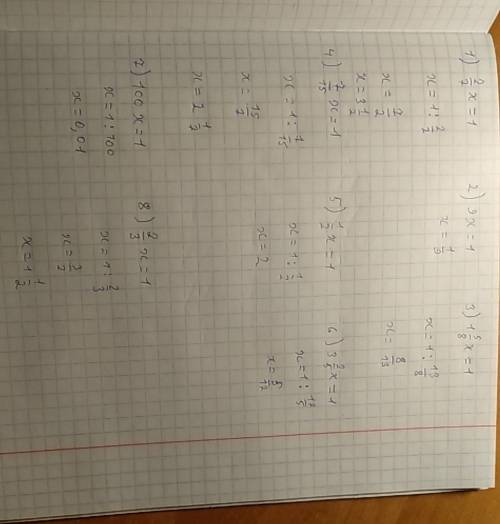 1) 2/7 x = 1
x = 1 : 2/7
x = 7/2
x = 3 1/2
2) 9x = 1
x = 1/9
3) 1 5/8 x = 1
x = 1 : 13/8
x = 8/13
4) 7/15 x = 1
x = 1 : 7/15
x = 15/7
x = 2 1/7
5) 1/2 x = 1
x = 1 : 1/2
x = 2
6) 3 2/5 x = 1
x = 1 : 17/5
x = 5/17
7) 100 x = 1
x = 1 : 100
x = 0,01
8) 2/3 x = 1
x = 1 : 2/3
x = 3/2
x = 1 1/2